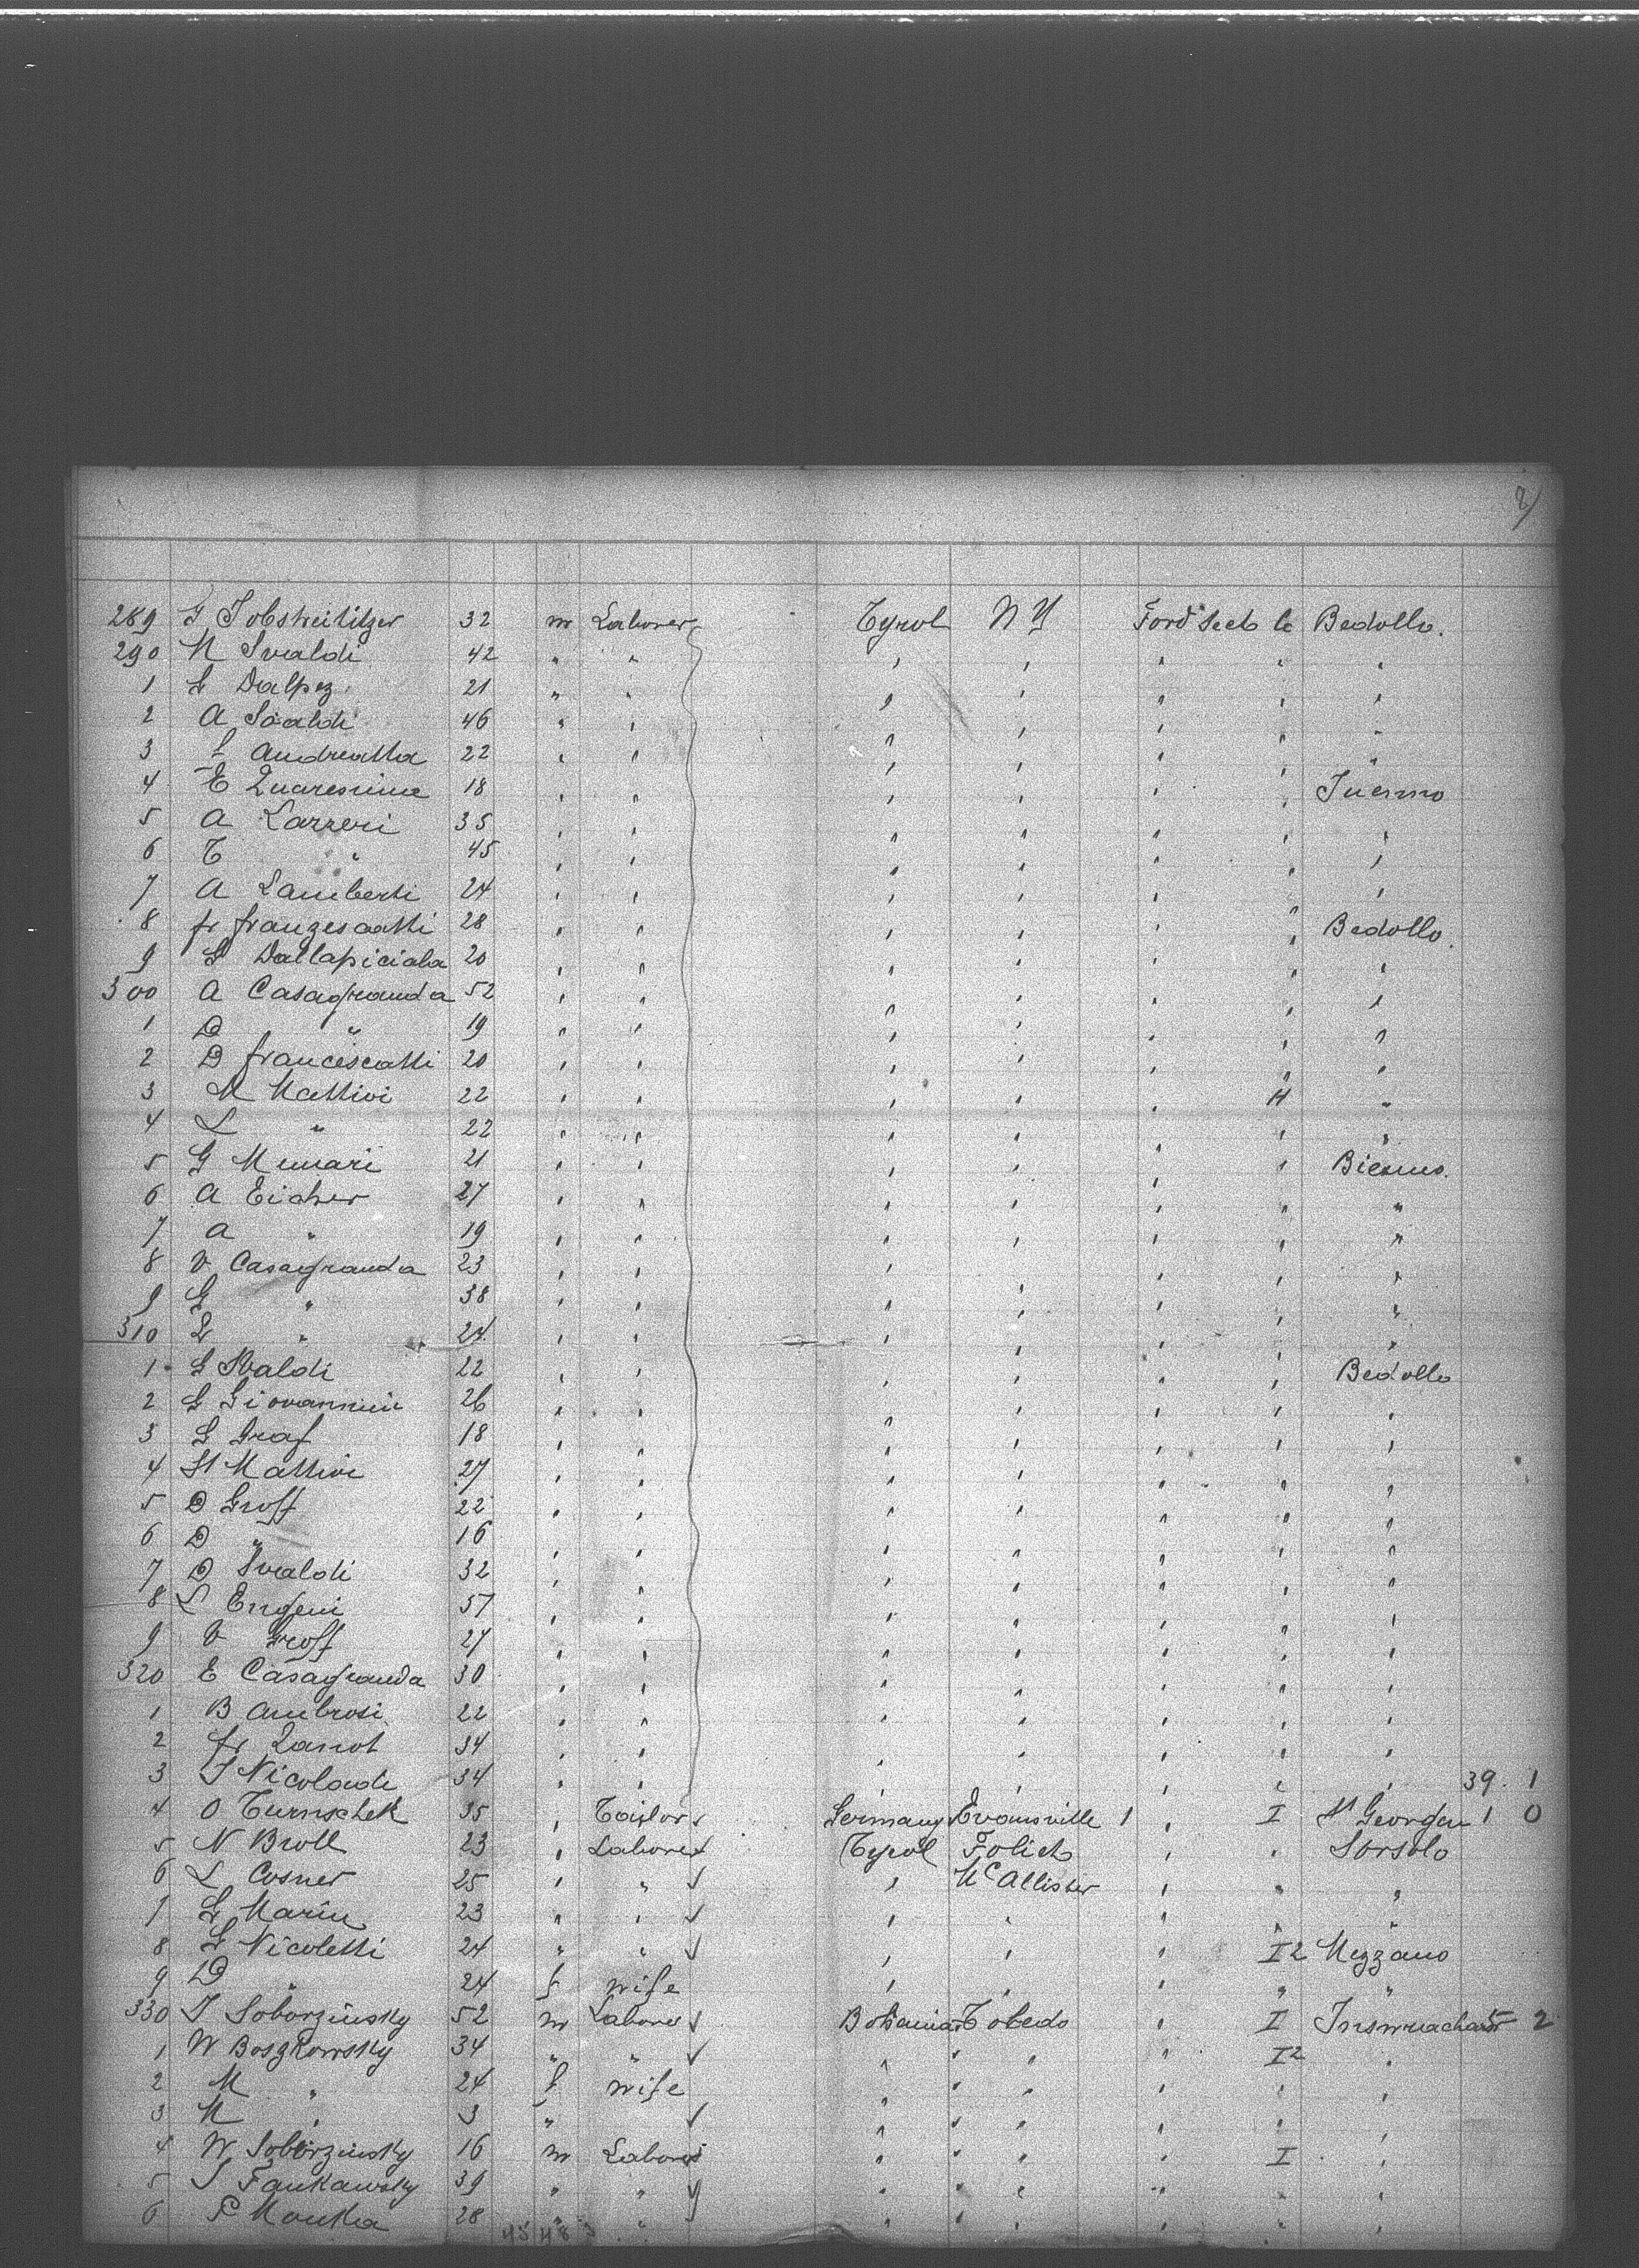 289 J Jobstreibitzer 32 m Laborer Tyrol N Y Ford Seck le Bedollo.
290 N Svaldi 42 " " " " " " "
1 G Dalpez 21 " " " " " " "
2 A Svaldi 46 " " " " " " "
3 L Andreatta 22 " " " " " " "
4 E Quaresima 18 " " " " " " Tuenno
5 A Lazzeri 35 " " " " " " "
6 T " 45 " " " " " " "
7 A Lamberti 24 " " " " " " "
8 fr franzescatti 28 " " " " " " Bedollo.
9 G Dallapiciola 20 " " " " " " "
300 A Casagranda 52 " " " " " " "
1 D " 19 " " " " " " "
2 D francescatti 20 " " " " " " "
3 M Mattivi 22 " " " " " H "
4 L " 22 " " " " " " "
5 G Munari 21 " " " " " " Bienno.
6 A Eicher 27 " " " " " " "
7 A " 19 " " " " " " "
8 V Casagranda 23 " " " " " " "
9 G " 38 " " " " " " "
310 L " 24 " " " " " " "
1 G Svaldi 22 " " " " " " Bedollo
2 G Giovannini 26 " " " " " " "
3 G Graf 18 " " " " " " "
4 St Mattivi 27 " " " " " " "
5 D Groff 22 " " " " " " "
6 D " 16 " " " " " " "
7 D Svaldi 32 " " " " " " "
8 L Erigeni 57 " " " " " " "
9 V Groff 27 " " " " " " "
320 E Casagranda 30 " " " " " " "
1 B Ambrosi 22 " " " " " " "
2 fr Zanot 34 " " " " " " "
3 J Nicolaudi 34 " " " " " " " 39. 1
4 O Turnschek 35 " Taylor Germany Evansville 1 " I St Georgen 1 0
5 N Broll 23 " Laborer Tyrol Foliet " " Sorsolo
6 L Cosner 25 " " " McAllister " " "
7 G Marin 23 " " " " " " "
8 G Nicoletti 24 " " " " " I2 Mezzano
9 D " 24 f wife " " " " "
330 J Soborzinsky 52 m Laborer Bohemia Toledo " I 5 2
1 W Boszkowsky 34 " " " " " " I2 "
2 M " 24 f wife " " " " " "
3 M " 3 " " " " " " "
4 W Soborzinsky 16 m Laborer " " " " I "
5 J Fankawsky 39 " " " " " " " "
6 P Monka 28 " " " " " " " "